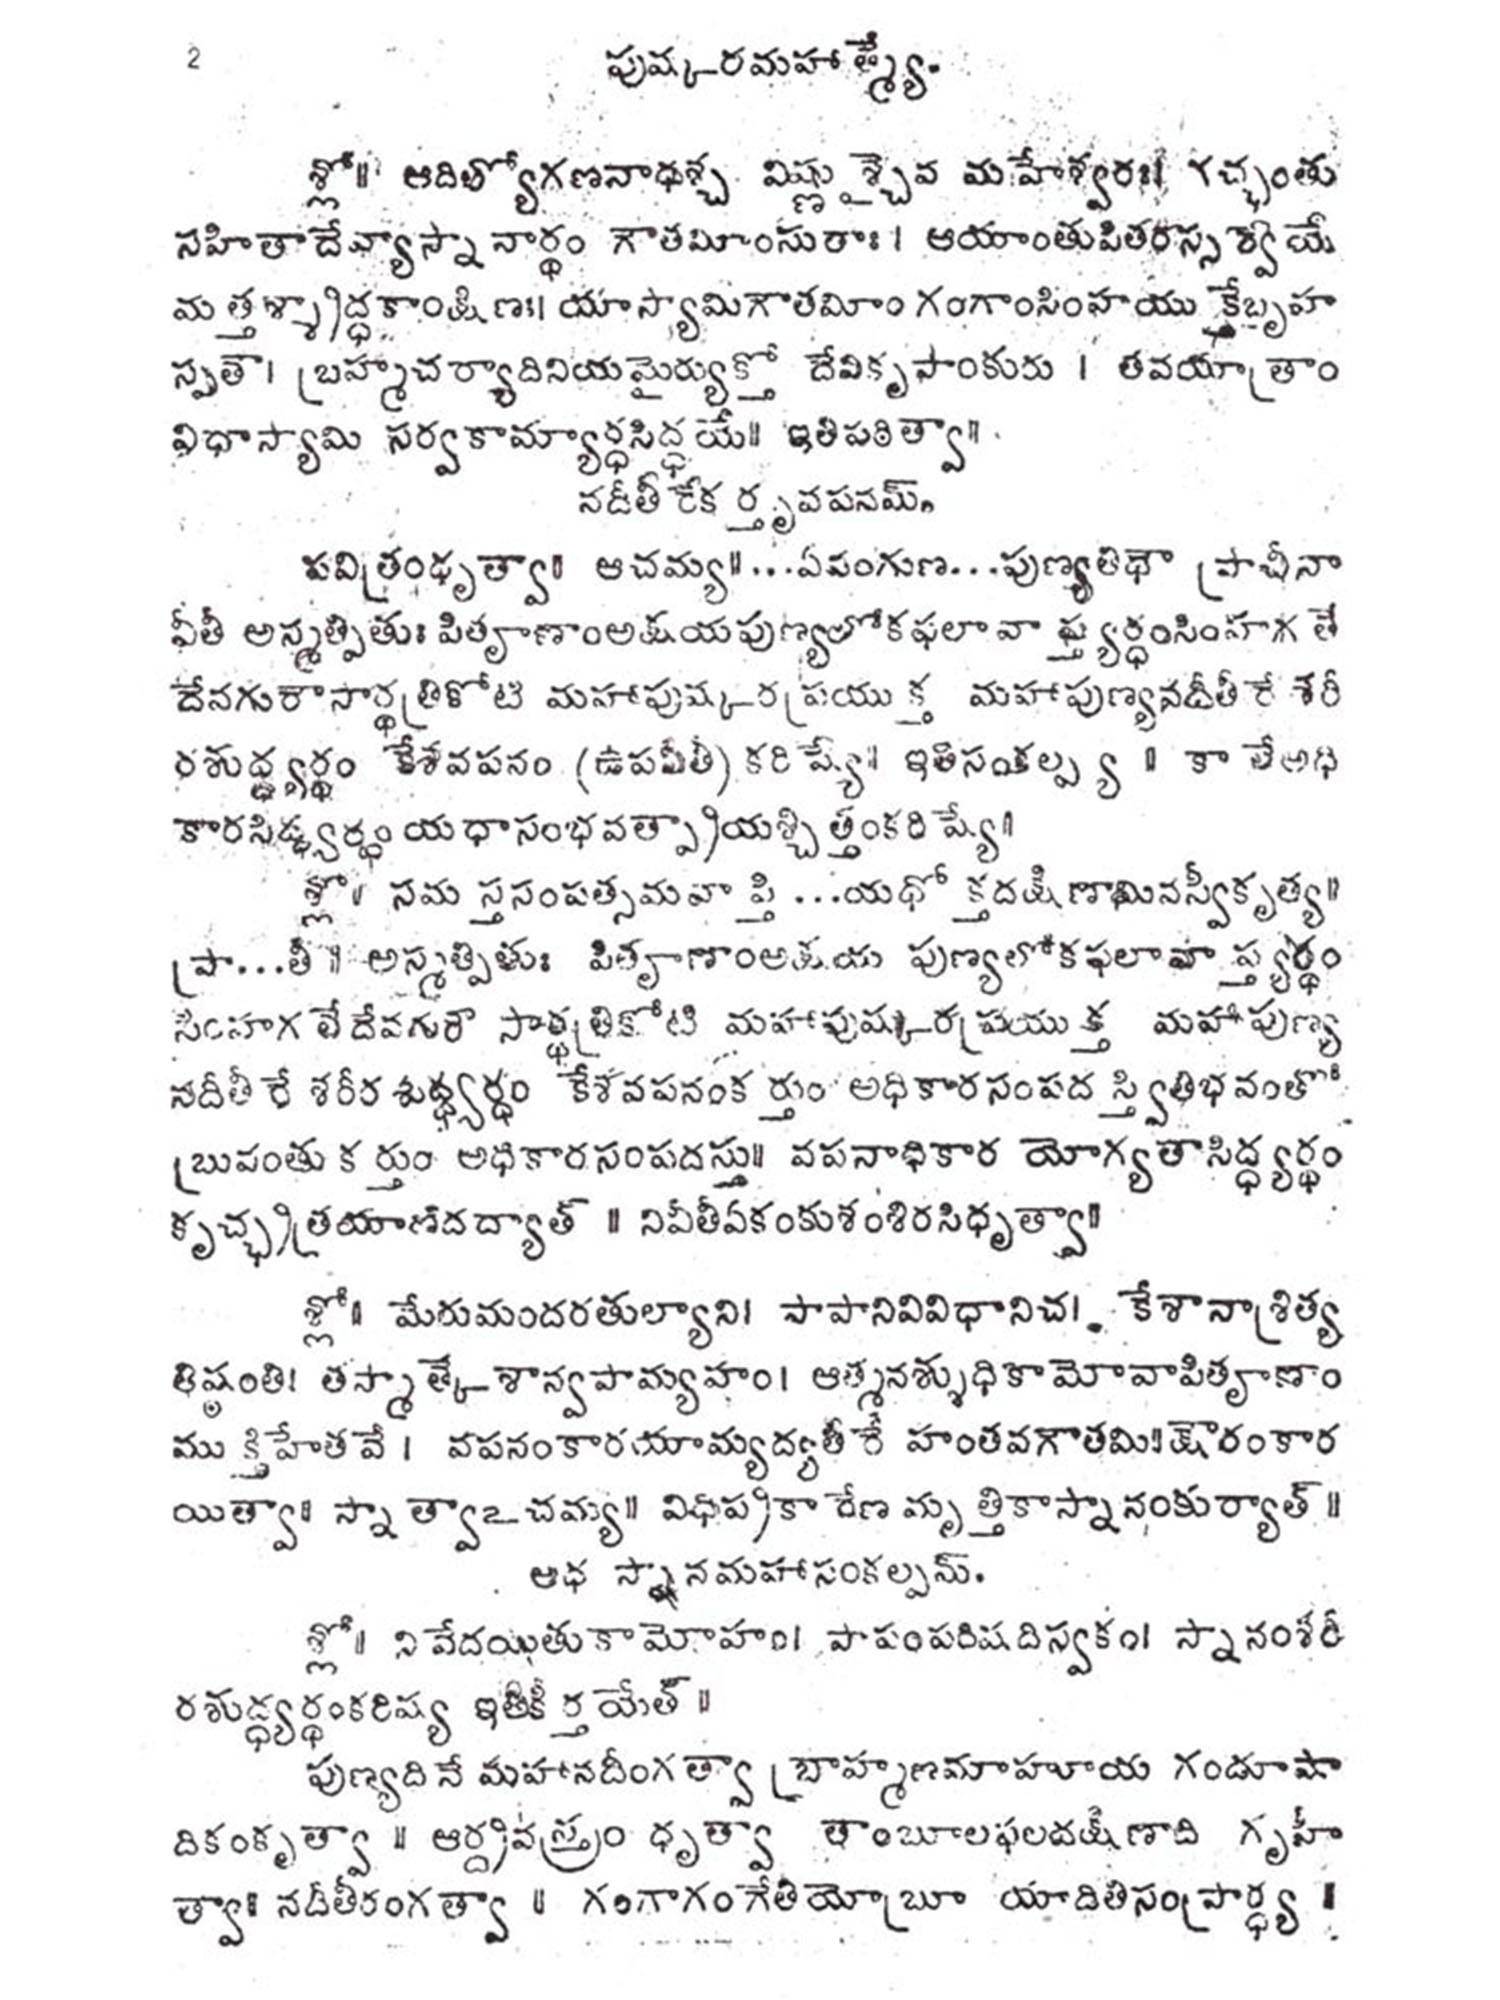 2
పుష్కరమహాత్మ్యే.
శ్లో॥ ఆదిత్యోగణనాథశ్చ విష్ణుశ్చైవ మహేశ్వరః। గచ్ఛంతు
సహితాదేవ్యాస్నానార్థం గౌతమీంసురాః। ఆయాంతుపితరస్సర్వేయే
మత్తశ్శ్రాద్ధకాంక్షిణః। యాస్యామిగౌతమీం గంగాంసింహయుక్తేబృహ
స్పతౌ। బ్రహ్మచర్యాదినియమైర్యుక్తో దేవికృపాంకురు । తవయాత్రాం
విధాస్యామి సర్వకామ్యార్థసిద్ధయే॥ ఇతిపఠిత్వా॥
నదీతీరేకర్తృవపనమ్.
పవిత్రంధృత్వా॥ ఆచమ్య॥...ఏవంగుణ...పుణ్యతిథౌ ప్రాచీనా
వీతీ అస్మత్పితుః పితౄణాంఅక్షయపుణ్యలోకఫలావాప్త్యర్థంసింహగతే
దేవగురౌసార్థత్రికోటి మహాపుష్కరప్రయుక్త మహాపుణ్యనదీతీరే శరీ
రశుద్ధ్యర్థం కేశవపనం (ఉపవీతీ) కరిష్యే॥ ఇతిసంకల్ప్య ॥ కాలేఅధి
కారసిద్ధ్యర్థంయథాసంభవత్ప్రాయశ్చిత్తంకరిష్యే॥
శ్లో॥ సమస్తసంపత్సమవాప్తి ...యథోక్తదక్షిణామివస్వీకృత్య॥
ప్రా...తీ ॥ అస్మత్పితుః పితౄణాంఅక్షయ పుణ్యలోకఫలావాప్త్యర్థం
సింహగతేదేవగురౌ సార్థత్రికోటి మహాపుష్కరప్రయుక్త మహాపుణ్య
నదీతీరే శరీరశుద్ధ్యర్థం కేశవపనంకర్తుం అధికారసంపదస్త్వితిభవంతో
బ్రువంతు కర్తుం అధికారసంపదస్తు॥ వపనాధికార యోగ్యతాసిద్ధ్యర్థం
కృచ్ఛ్రత్రయాణిదద్యాత్ ॥ నివీతీఏకంకుశంశిరసిధృత్వా॥
శ్లో॥ మేరుమందరతుల్యాని। పాపానివివిధానిచ। కేశానాశ్రిత్య
తిష్ఠంతి। తస్మాత్కేశాన్వపామ్యహం। ఆత్మనశ్శుధికామోవాపితౄణాం
ముక్తిహేతవే । వపనంకారయామ్యద్యతీరే హంతవగౌతమి॥క్షౌరంకార
యిత్వా॥ స్నాత్వాఽచమ్య॥ విధిప్రకారేణ మృత్తికాస్నానంకుర్యాత్ ॥
ఆథ స్నానమహాసంకల్పమ్.
శ్లో॥ నివేదయితుకామోహం। పాపంపరిషదిస్వకం। స్నానంశరీ
రశుద్ధ్యర్థంకరిష్య ఇతికీర్తయేత్ ॥
పుణ్యదినే మహానదీంగత్వా బ్రాహ్మణమాహూయ గండూషా
దికంకృత్వా ॥ ఆర్ద్రవస్త్రం ధృత్వా తాంబూలఫలదక్షిణాది గృహీ
త్వా॥ నదీతీరంగత్వా ॥ గంగాగంగేతియోబ్రూయాదితిసంప్రార్థ్య ॥